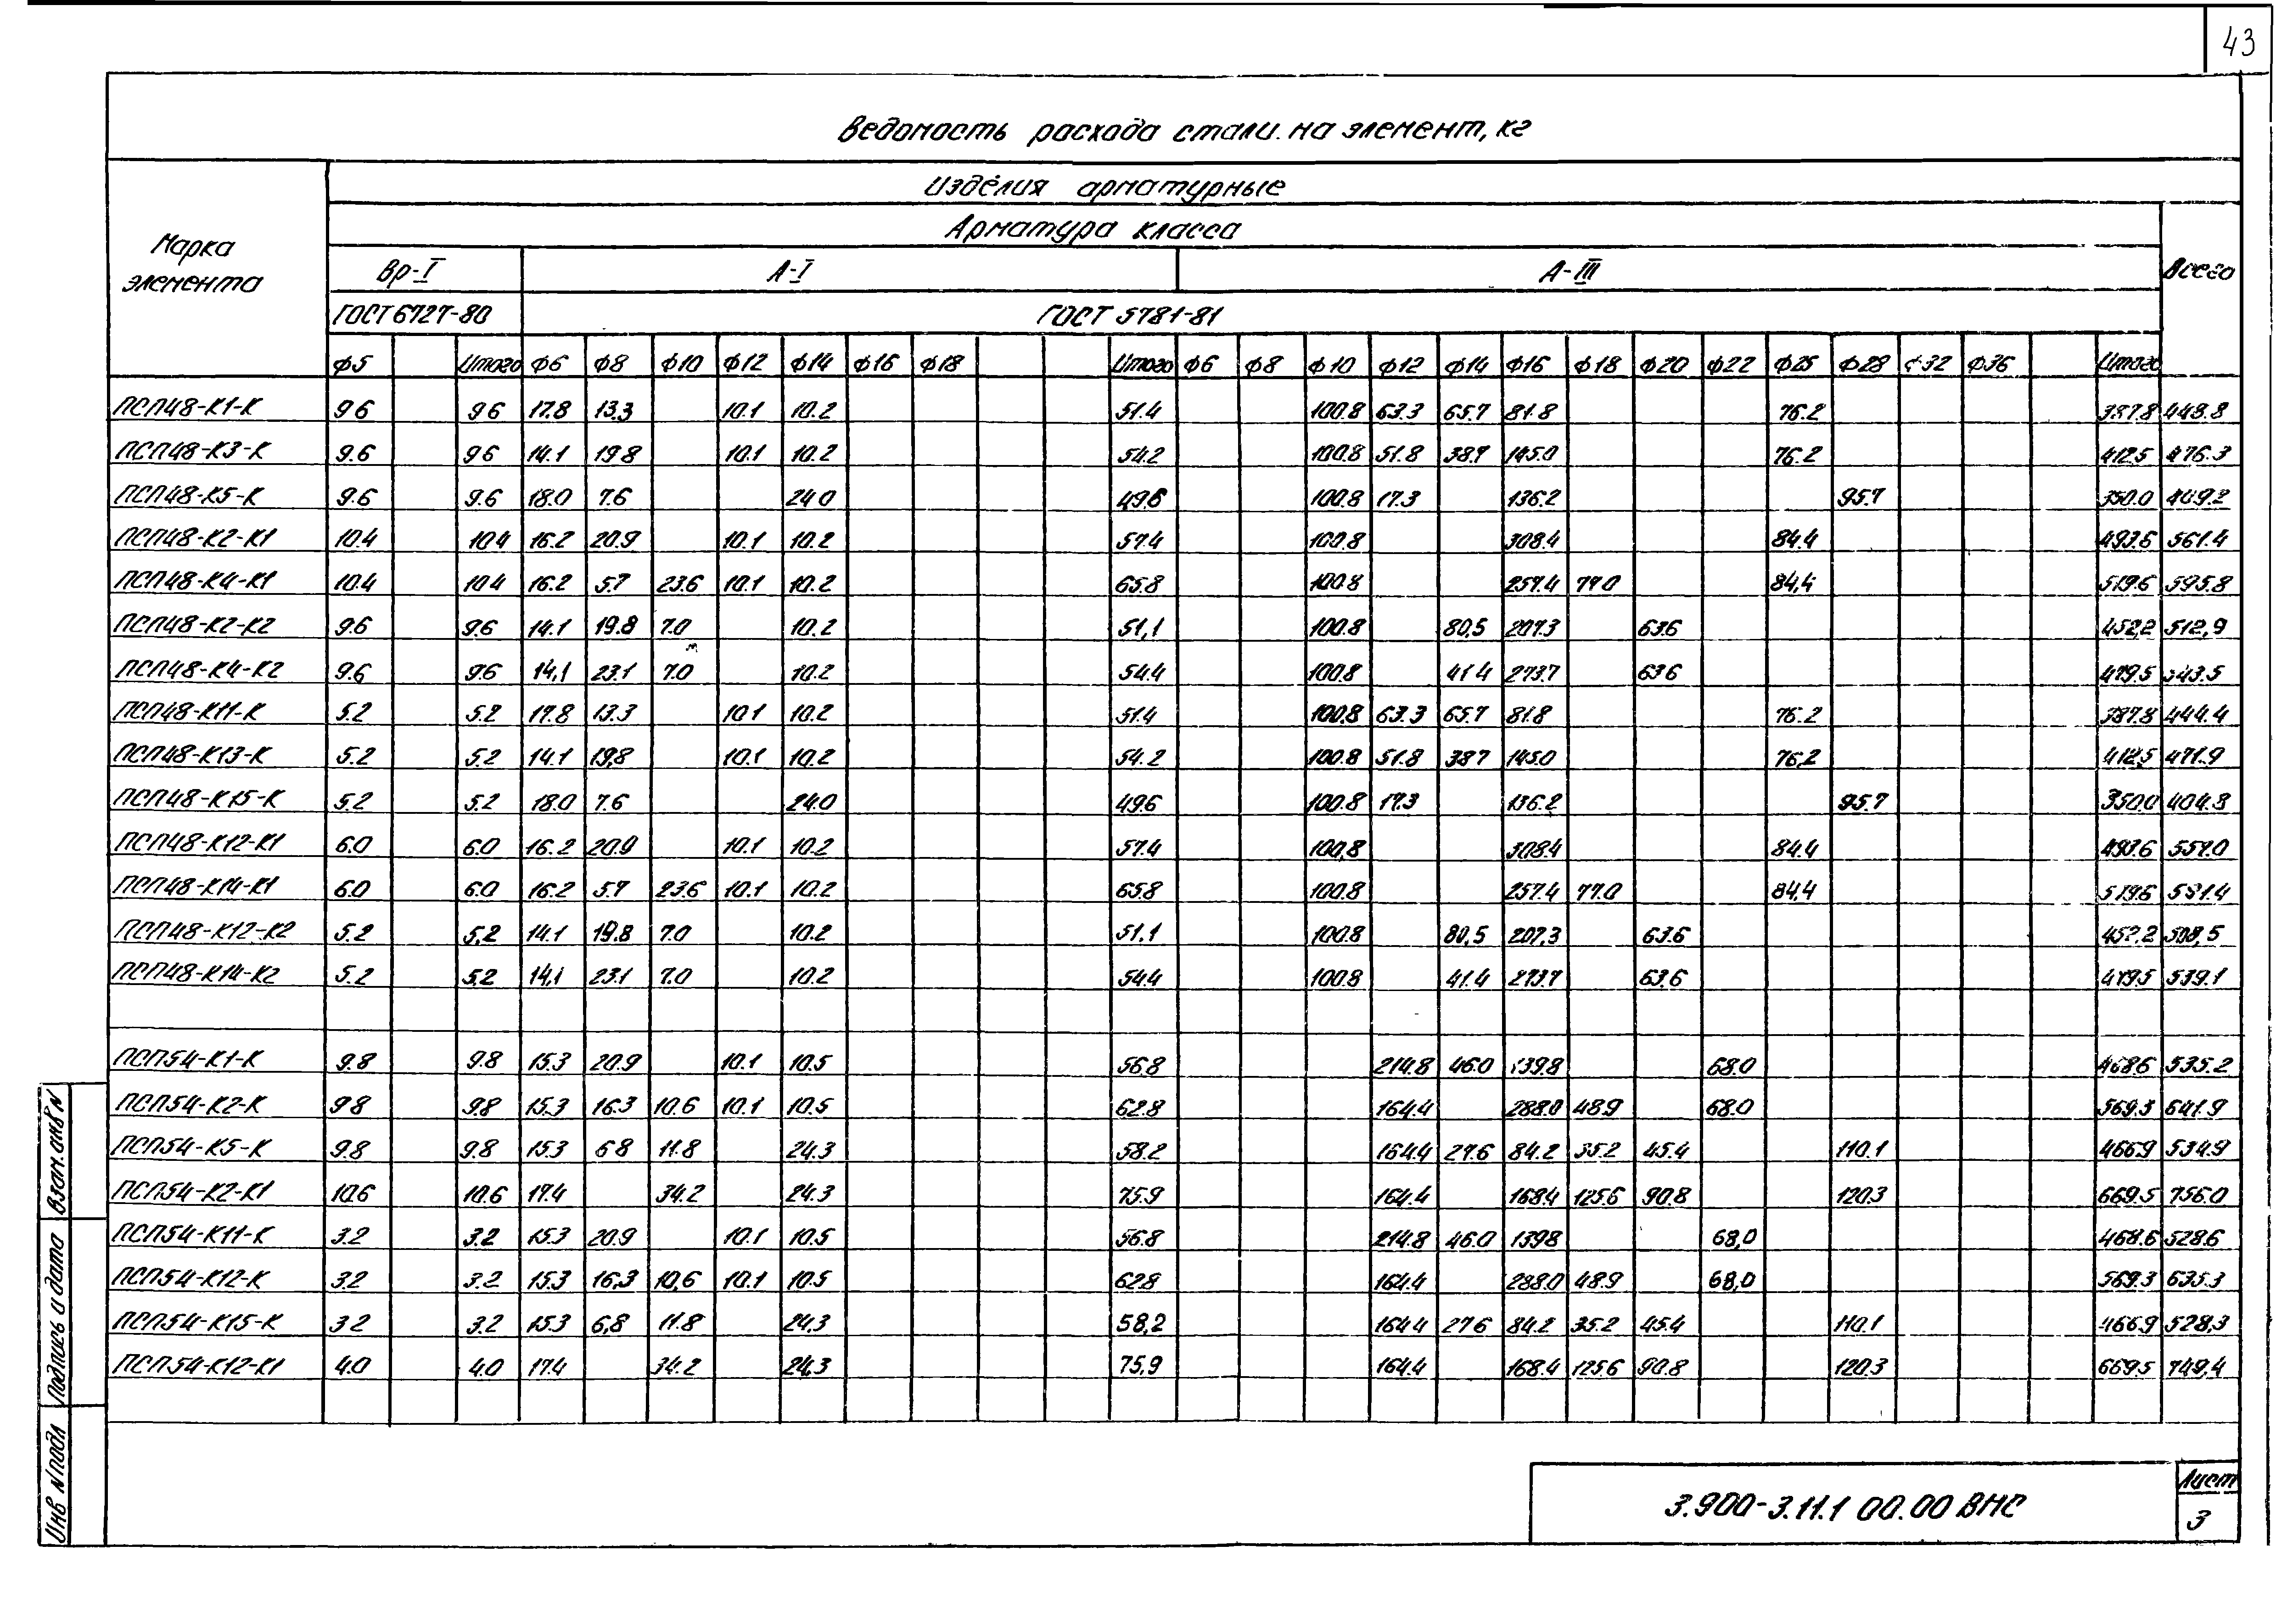 43
Ведомость расхода стали на элемент, кг
Марка элемента
Изделия арматурные
Арматура класса
Вр-I А-I А-III Всего
ГОСТ 6727-80 ГОСТ 5781-81
Ф5 Итого Ф6 Ф8 Ф10 Ф12 Ф14 Ф16 Ф18 Итого Ф6 Ф8 Ф10 Ф12 Ф14 Ф16 Ф18 Ф20 Ф22 Ф25 Ф28 Ф32 Ф36 Итого
ПСП48-К1-К 9.6 9.6 17.8 13.3 10.1 10.2 51.4 100.8 63.3 65.7 81.8 76.2 387.8 448.8
ПСП48-К3-К 9.6 9.6 14.1 19.8 10.1 10.2 54.2 100.8 51.8 38.7 145.0 76.2 412.5 476.3
ПСП48-К5-К 9.6 9.6 18.0 7.6 24.0 49.6 100.8 17.3 136.2 95.7 350.0 409.2
ПСП48-К2-К1 10.4 10.4 16.2 20.9 10.1 10.2 57.4 100.8 308.4 84.4 493.6 561.4
ПСП48-К4-К1 10.4 10.4 16.2 5.7 23.6 10.1 10.2 65.8 100.8 257.4 77.0 84,4 519.6 595.8
ПСП48-К2-К2 9.6 9.6 14.1 19.8 7.0 10.2 51,1 100.8 80,5 207.3 63.6 452,2 512,9
ПСП48-К4-К2 9.6 9.6 14,1 23.1 7.0 10.2 54.4 100.8 41.4 273.7 63.6 479.5 543.5
ПСП48-К11-К 5.2 5.2 17.8 13.3 10.1 10.2 51.4 100.8 63.3 65.7 81.8 76.2 387.8 444.4
ПСП48-К13-К 5.2 5.2 14.1 19,8 10.1 10.2 54.2 100.8 51.8 38.7 145.0 76,2 412,5 471.9
ПСП48-К15-К 5.2 5.2 18.0 7.6 24.0 49.6 100.8 17.3 136.2 95.7 350.0 404.8
ПСП48-К12-К1 6.0 6.0 16.2 20.9 10.1 10.2 57.4 100,8 308.4 84.4 493.6 557.0
ПСП48-К14-К1 6.0 6.0 16.2 5.7 23.6 10.1 10.2 65.8 100.8 257.4 77.0 84,4 519.6 591.4
ПСП48-К12-К2 5.2 5,2 14.1 19.8 7.0 10.2 51.1 100.8 80,5 207,3 63.6 452.2 508,5
ПСП48-К14-К2 5.2 5.2 14,1 23.1 7.0 10.2 54.4 100.8 41.4 273.7 63.6 479.5 539.1
ПСП54-К1-К 9.8 9.8 15.3 20.9 10.1 10.5 56.8 214.8 46.0 139.8 68.0 468.6 535.2
ПСП54-К2-К 9.8 9.8 15.3 16.3 10.6 10.1 10.5 62.8 164.4 288.0 48.9 68.0 569.3 641.9
ПСП54-К5-К 9.8 9.8 15.3 6.8 11.8 24.3 58.2 164.4 27.6 84.2 35.2 45.4 110.1 466.9 534.9
ПСП54-К2-К1 10.6 10.6 17.4 34.2 24.3 75.9 164.4 168.4 125.6 90.8 120.3 669.5 756.0
ПСП54-К11-К 3.2 3.2 15.3 20.9 10.1 10.5 56.8 214.8 46.0 139.8 68,0 468.6 528.6
ПСП54-К12-К 3.2 3.2 15.3 16,3 10,6 10.1 10.5 62.8 164.4 288.0 48.9 68,0 569.3 635.3
ПСП54-К15-К 3.2 3.2 15.3 6,8 11.8 24,3 58,2 164.4 27.6 84.2 35.2 45.4 110.1 466.9 528,3
ПСП54-К12-К1 4.0 4.0 17.4 34.2 24,3 75,9 164.4 168.4 125.6 90.8 120.3 669.5 749,4
Взам. инв N
Подпись и дата
Инв N подл
3.900-3.11.1 00.00 ВМС
Лист
3